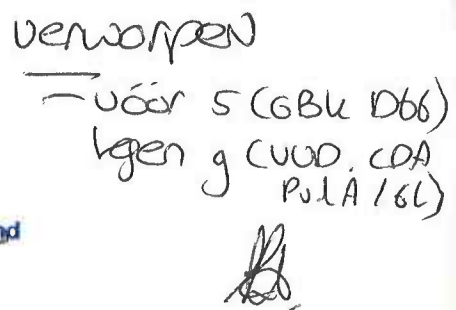 verworpen
- vóór 5 (GBK D66)
tegen 9 (VVD. CDA
PvdA / GL)
nd